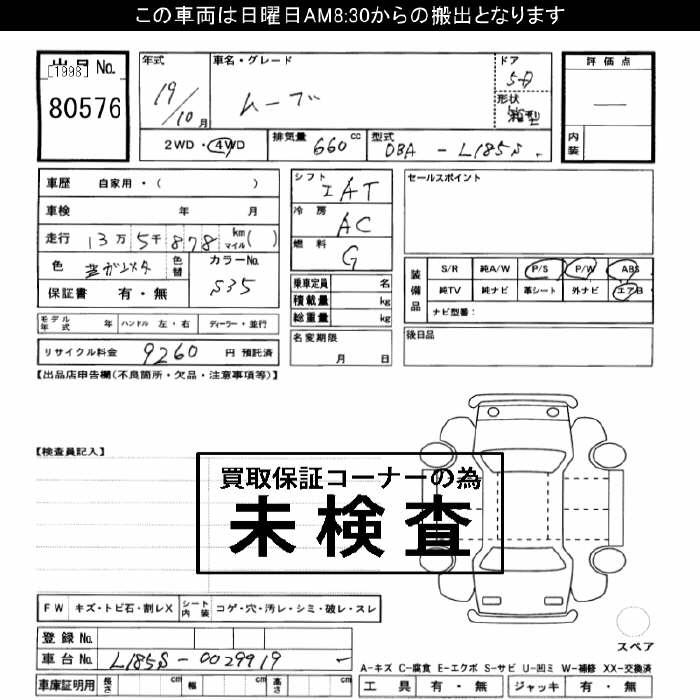 この車両は日曜日AM8:30からの搬出となります
出品No.
[1998]
80576
年式
19/10月
車名・グレード
ムーブ
ドア
5D
形状
箱型
評価点
内装
2WD・4WD
排気量 660cc
型式 DBA - L185S
車歴 自家用・( )
車検 年 月
走行 13万5千878km マイル( )
色
色替
カラーNo.
S35
保証書 有・無
シフト IAT
冷房 AC
燃料 G
乗車定員 名
積載量 kg
総重量 kg
名変期限
月 日
セールスポイント
装備品
S/R 純A/W P/S P/W ABS
純TV 純ナビ 革シート 外ナビ エアB
ナビ型番:
後日品
モデル年式 年 ハンドル 左・右 ディーラー・並行
リサイクル料金 9260 円 預託済
【出品店申告欄(不良箇所・欠品・注意事項等)】
【検査員記入】
買取保証コーナーの為
未検査
FW キズ・トビ石・割レX シート内装 コゲ・穴・汚レ・シミ・破レ・スレ
登録No.
車台No. L185S-0029919
車庫証明用 長さ cm 幅 cm 高さ cm
スペア
A-キズ C-腐食 E-エクボ S-サビ U-凹ミ W-補修 XX-交換済
工具 有・無 ジャッキ 有・無